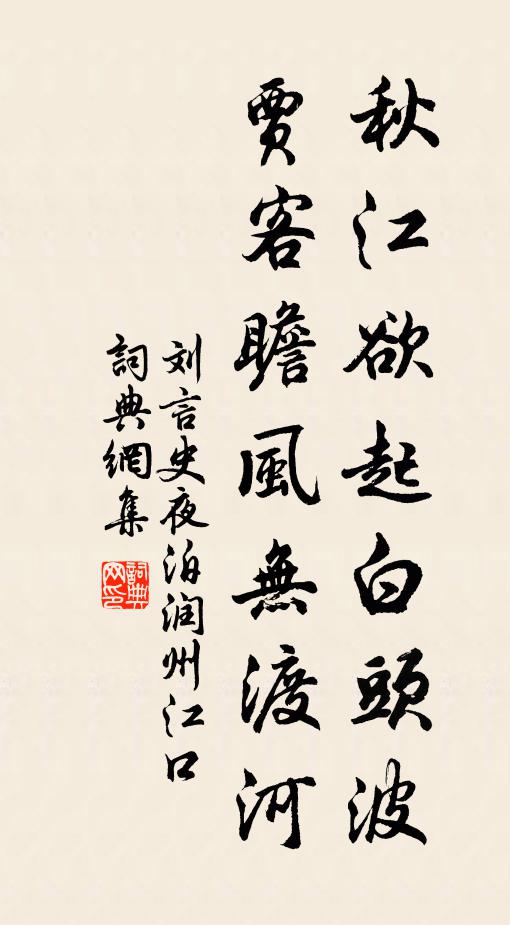 秋江欲起白頭波
賈客瞻風無渡河
刘言史夜泊润州江口
詞典網集
詞典
网印